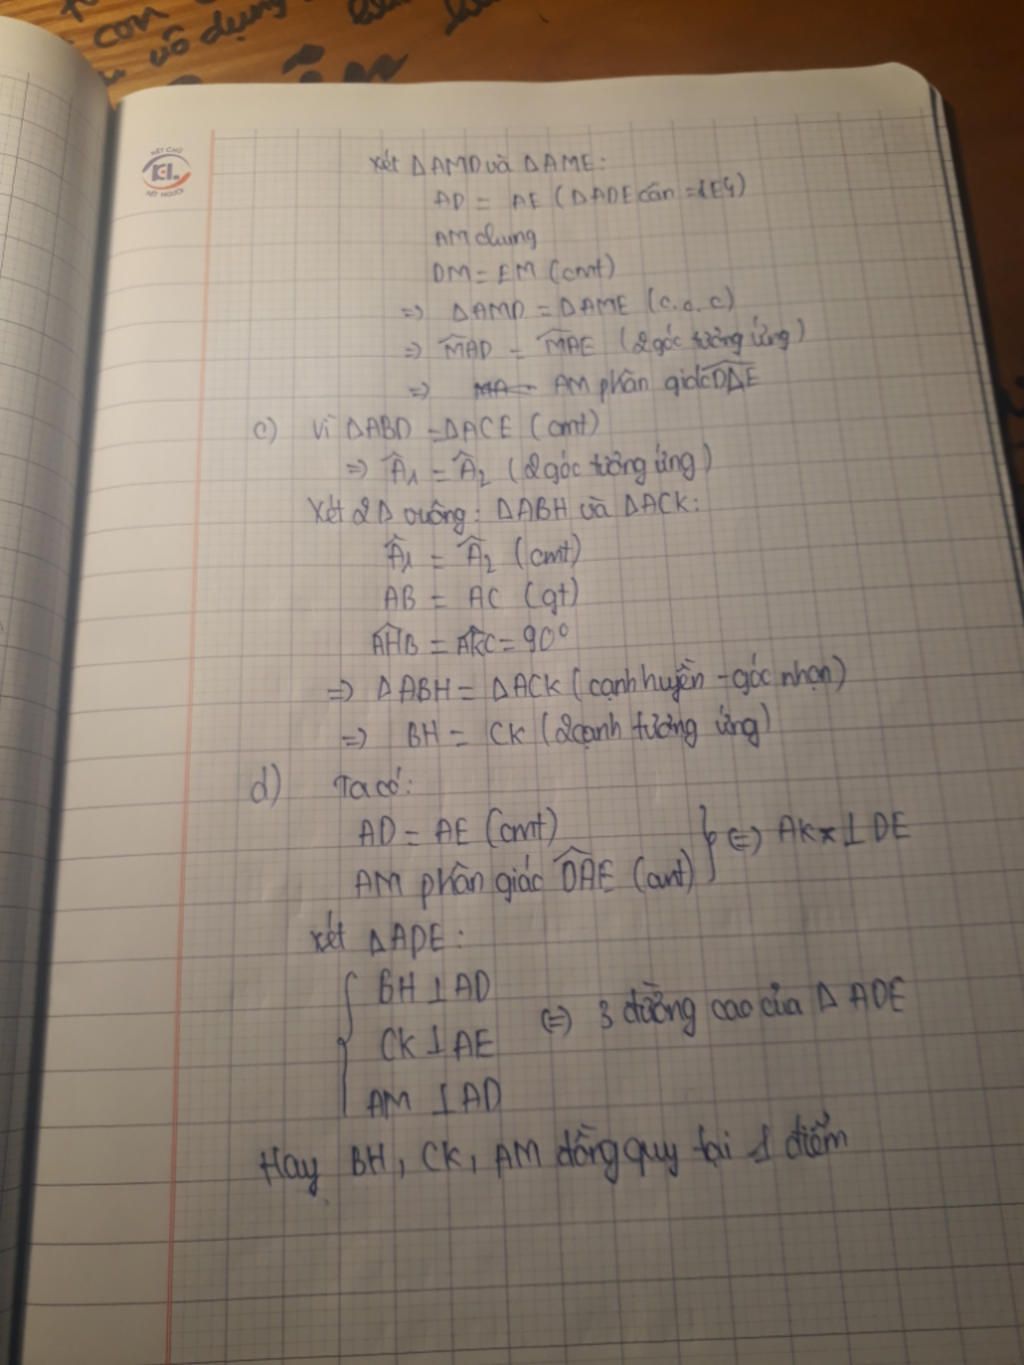 con
vô dụng
HẾT CHỮ
KL.
NỞ NGƯỜI
Xét ΔAMD và ΔAME:
AD = AE (ΔADE cân
AM chung
DM = EM (cmt)
=> ΔAMD = ΔAME (c.c.c)
=> MAD = MAE (2 góc tương ứng)
=> AM phân giác DAE
c) Vì ΔABD = ΔACE (cmt)
=> Â1 = Â2 (2 góc tương ứng)
Xét 2Δ vuông: ΔABH và ΔACK:
Â1 = Â2 (cmt)
AB = AC (gt)
AHB = AKC = 90°
=> ΔABH = ΔACK (cạnh huyền - góc nhọn)
=> BH = CK (2 cạnh tương ứng)
d) Ta có:
AD = AE (cmt)
AM phân giác DAE (cmt) } <=> AK ⊥ DE
Xét ΔADE:
BH ⊥ AD
CK ⊥ AE <=> 3 đường cao của Δ ADE
AM ⊥ AD
Hay BH, CK, AM đồng quy tại 1 điểm